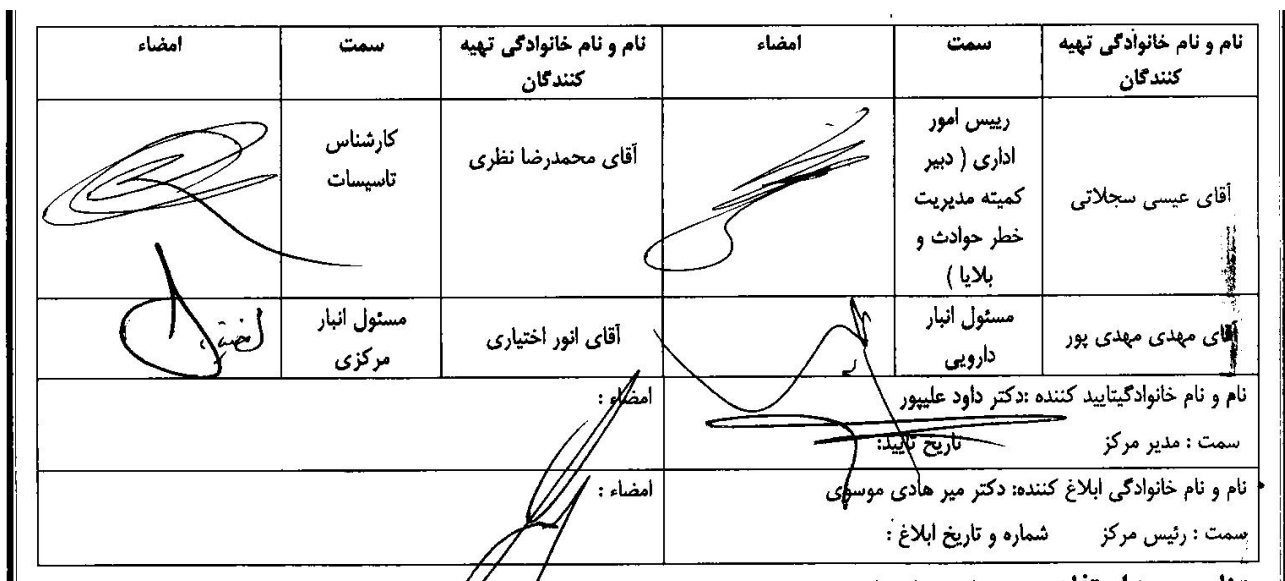 نام و نام خانوادگی تهیه کنندگان سمت امضاء نام و نام خانوادگی تهیه کنندگان سمت امضاء
آقای عیسی سجلاتی رییس امور اداری ( دبیر کمیته مدیریت خطر حوادث و بلایا ) آقای محمدرضا نظری کارشناس تاسیسات
آقای مهدی مهدی پور مسئول انبار دارویی آقای انور اختیاری مسئول انبار مرکزی
نام و نام خانوادگیتایید کننده :دکتر داود علیپور امضاء :
سمت : مدیر مرکز تاریخ تایید:
نام و نام خانوادگی ابلاغ کننده: دکتر میر هادی موسوی امضاء :
سمت : رئیس مرکز شماره و تاریخ ابلاغ :